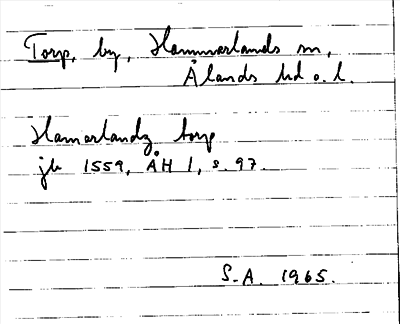 Torp, by, Hammarlands sn,
Ålands hd o. l.
Hamarlandz torp
jb 1559, ÅH 1, s. 97.
S.A. 1965.